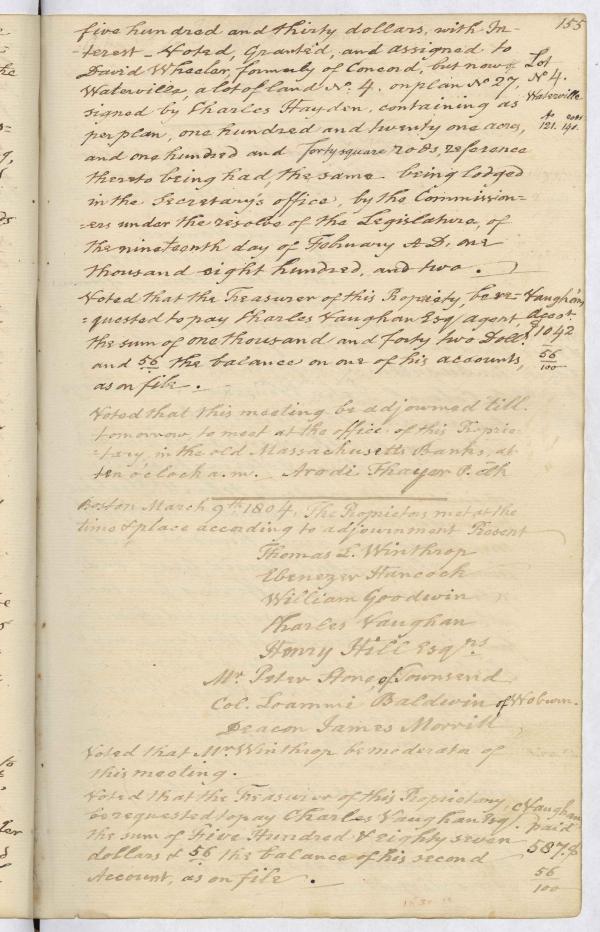 155
five hundred and thirty dollars, with In-
-terest _ Voted, Granted, and assigned to
David Wheeler, formerly of Concord, but now of
Waterville, a lot of land No. 4. on plan No 27,
signed by Charles Hayden, containing as
per plan, one hundred and twenty one acres,
and one hundred and forty square rods, reference
thereto being had, the same being lodged
in the Secretary's office, by the Commission=
=ers under the resolve of the Legislature, of
the nineteenth day of February A.D. one
thousand eight hundred, and two.
Lot
No 4.
Waterville
121. 141.
Voted that the Treasurer of this Propriety, be re=
=quested to pay Charles Vaughan Esqr agent,
the sum of one thousand and forty two Dolls.
and 56 the balance on one of his accounts,
as on file.
Vaughan's
Accot
$1042
56
100
Voted that this meeting be adjourned till
tomorrow, to meet at the office of this Proprie
=tary, in the old Massachusetts Banks, at
ten o'clock a.m. Arodi Thayer P. Clk
Boston March 9th 1804. The Proprietors met at the
time & place according to adjournment Present
Thomas L. Winthrop
Ebenezer Hancock
William Goodwin
Charles Vaughan
Henry Hill Esqrs
Mr. Peter Stone, of Townsend
Col. Loammi Baldwin of Woburn.
Deacon James Morrill
Voted that Mr Winthrop be moderator of
this meeting.
Voted that the Treasurer of this Proprietary,
be requested to pay Charles Vaughan Esqr
the sum of Five Hundred & eighty seven
dollars & 56 the balance of his second
Account, as on file.
C Vaughan
paid
587.$
56
100